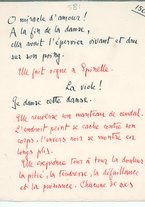 581
150
O miracle d'amour !
A la fin de la danse,
elle avait l'épervier vivant et dru
sur son poing.
Elle fait signe à Spinelle.
La viole !
Je danse cette danse.
Elle renverse son manteau de cendal.
L'endroit peint se cache contre son
corps, l'envers noir se montre en
plis.
Elle exprime tour à tour la douleur
la pitié, la tendresse, la défaillance
et la puissance. Chacune de ses